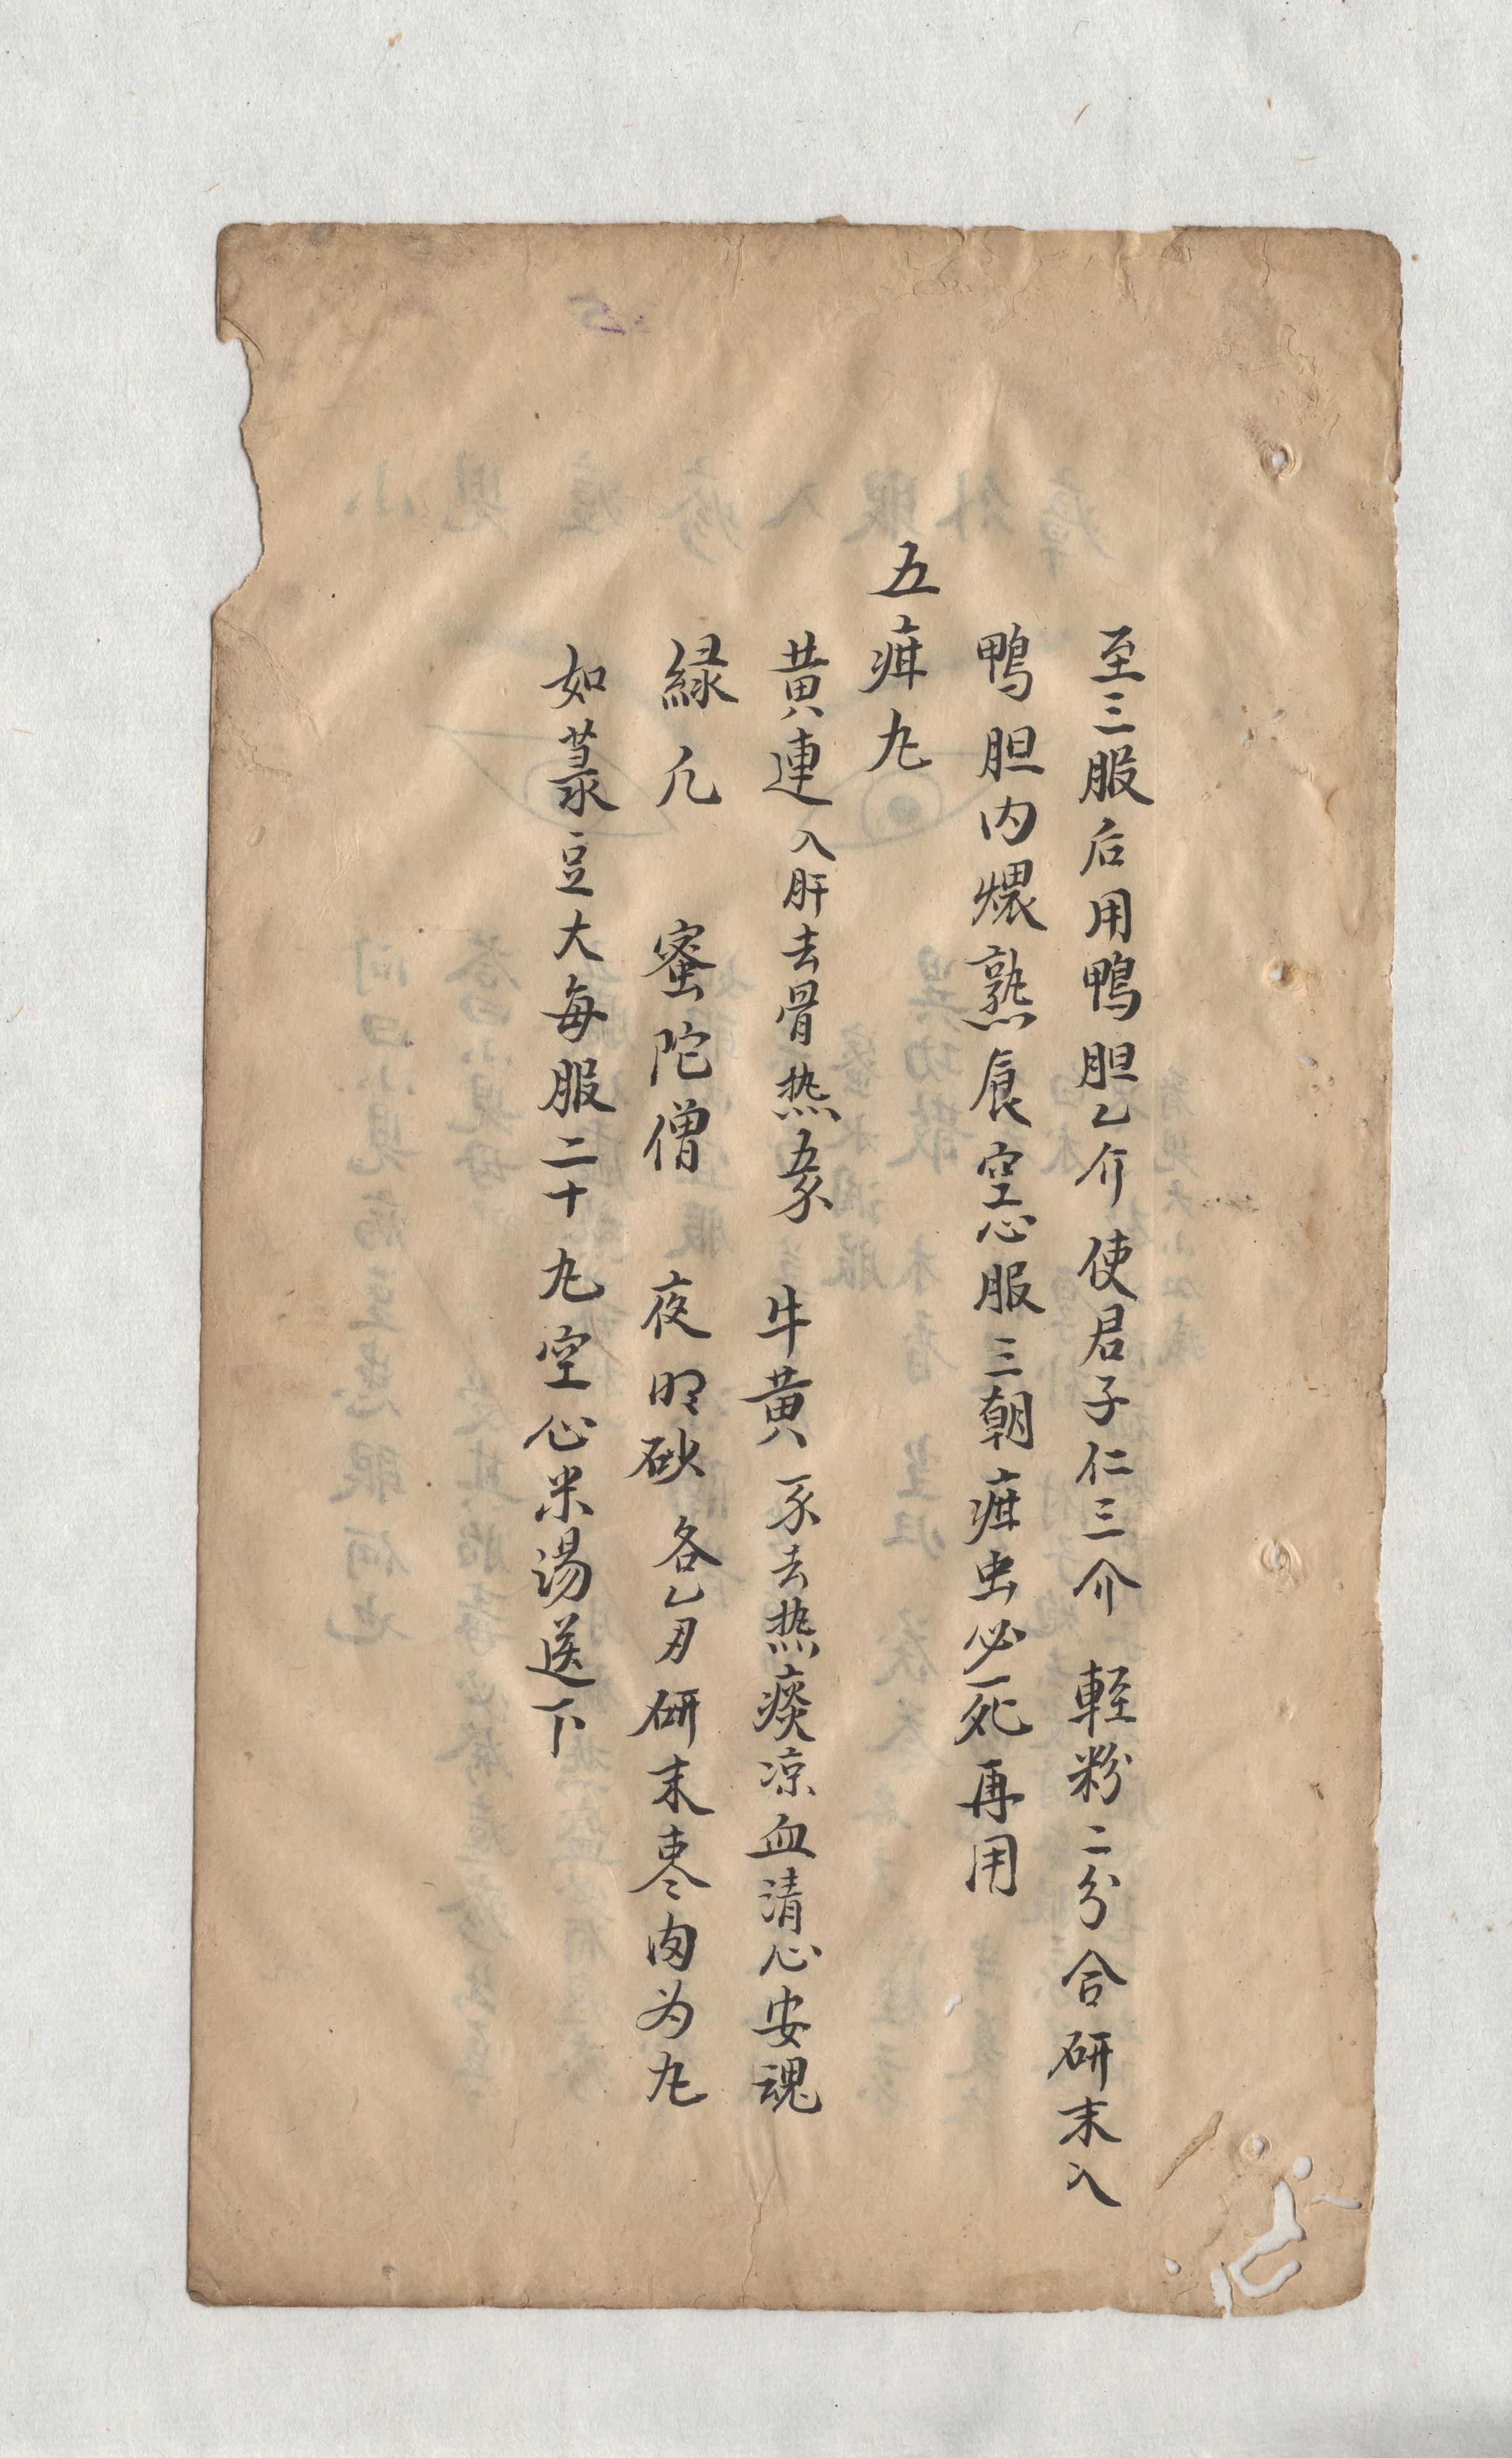 至三服后用鴨胆乙介 使君子仁三介 輕粉二分合研末入
鴨胆内煨熟食空心服三朝疳虫必死再用
五疳丸
黄連入肝去骨热 牛黄 去热痰凉血清心安魂
緑凡 蜜陀僧 夜明砂 各乙 研末枣肉为丸
如菉豆大每服二十丸空心米湯送下